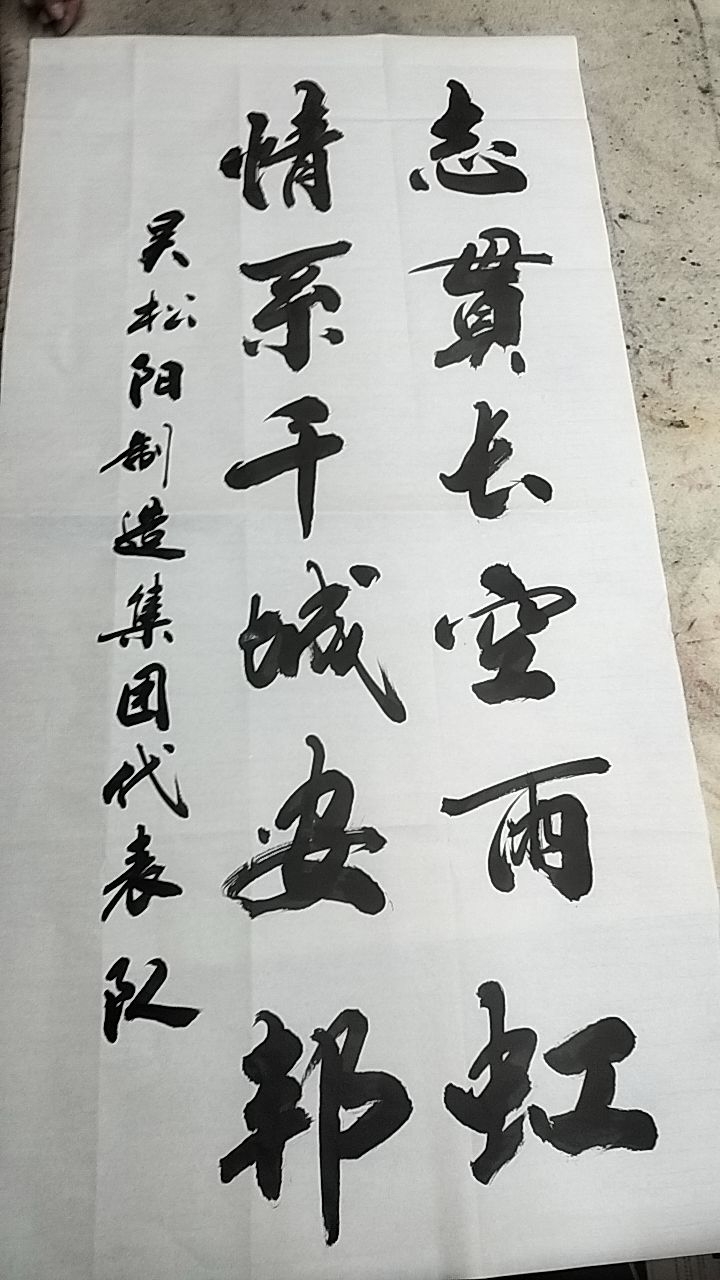 志贯长空雨虹
情系千城安邦
吴松阳制造集团代表队